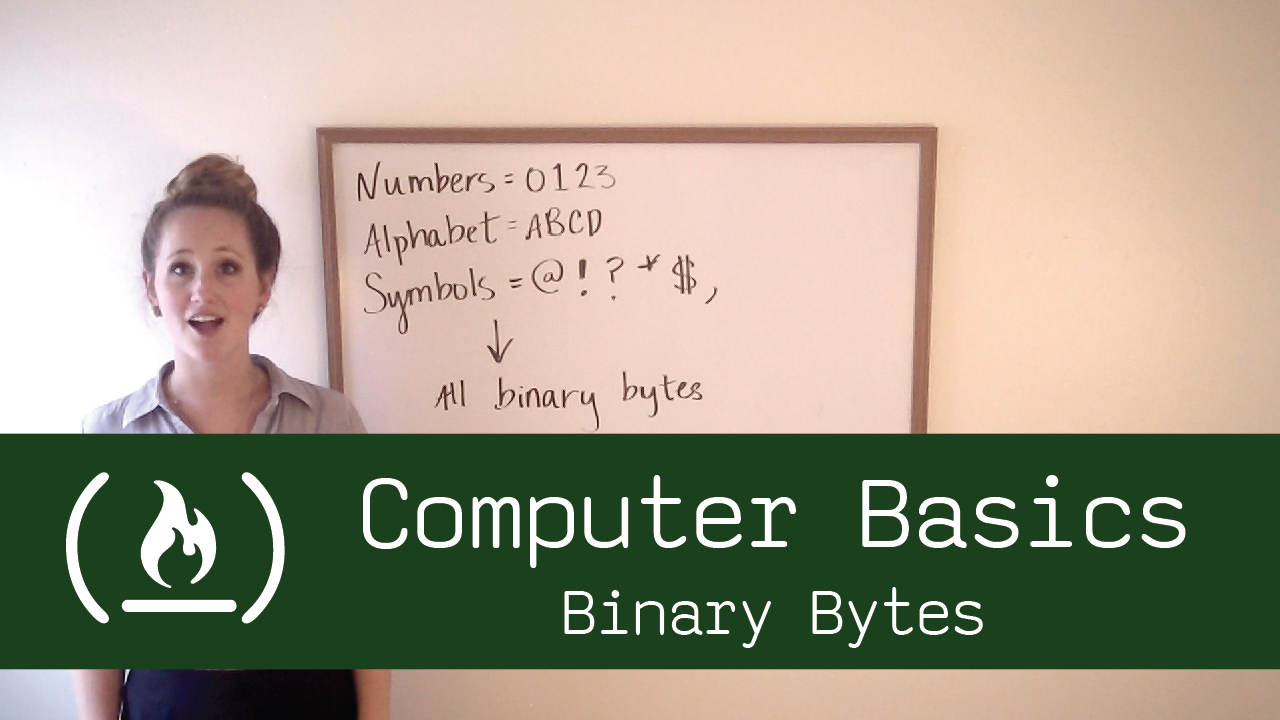 Numbers = 0123
Alphabet = ABCD
Symbols = @ ! ? * $,
↓
All binary bytes
Computer Basics
Binary Bytes